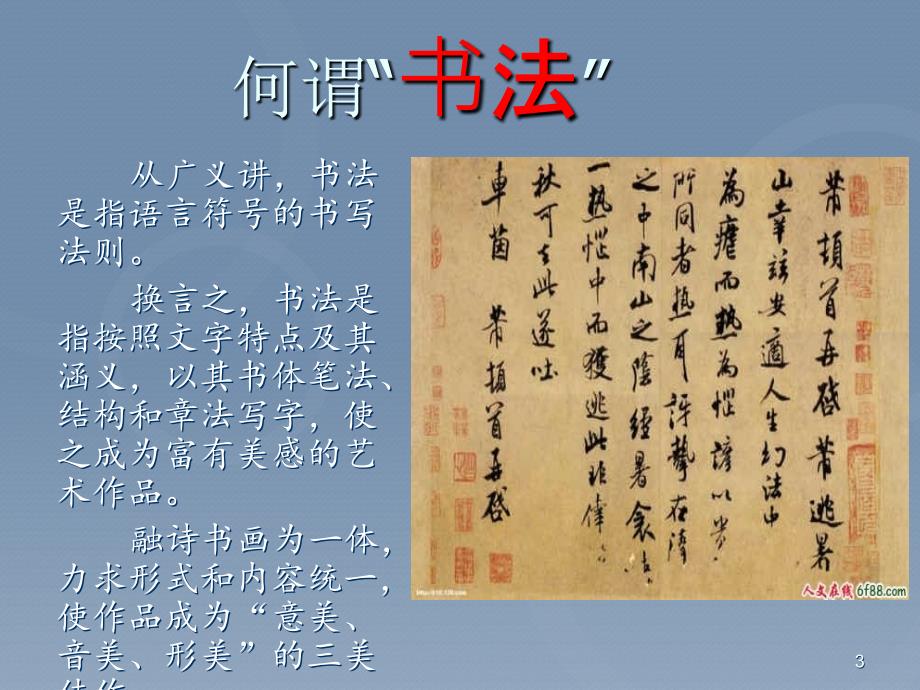 何谓“书法”
从广义讲，书法
是指语言符号的书写
法则。
换言之，书法是
指按照文字特点及其
涵义，以其书体笔法、
结构和章法写字，使
之成为富有美感的艺
术作品。
融诗书画为一体，
力求形式和内容统一，
使作品成为“意美、
音美、形美”的三美
芾頓首再啓芾逃暑
山幸兹安適人生幻法中
為瘧而熱為惱諺以貴
所同者熱耳訝摯在清
之中南山之陰經暑衾
一熱惱中而獲逃此非幸
秋可去此遂吐
車茵 芾頓首再啓
人文在线 6f88.com
3